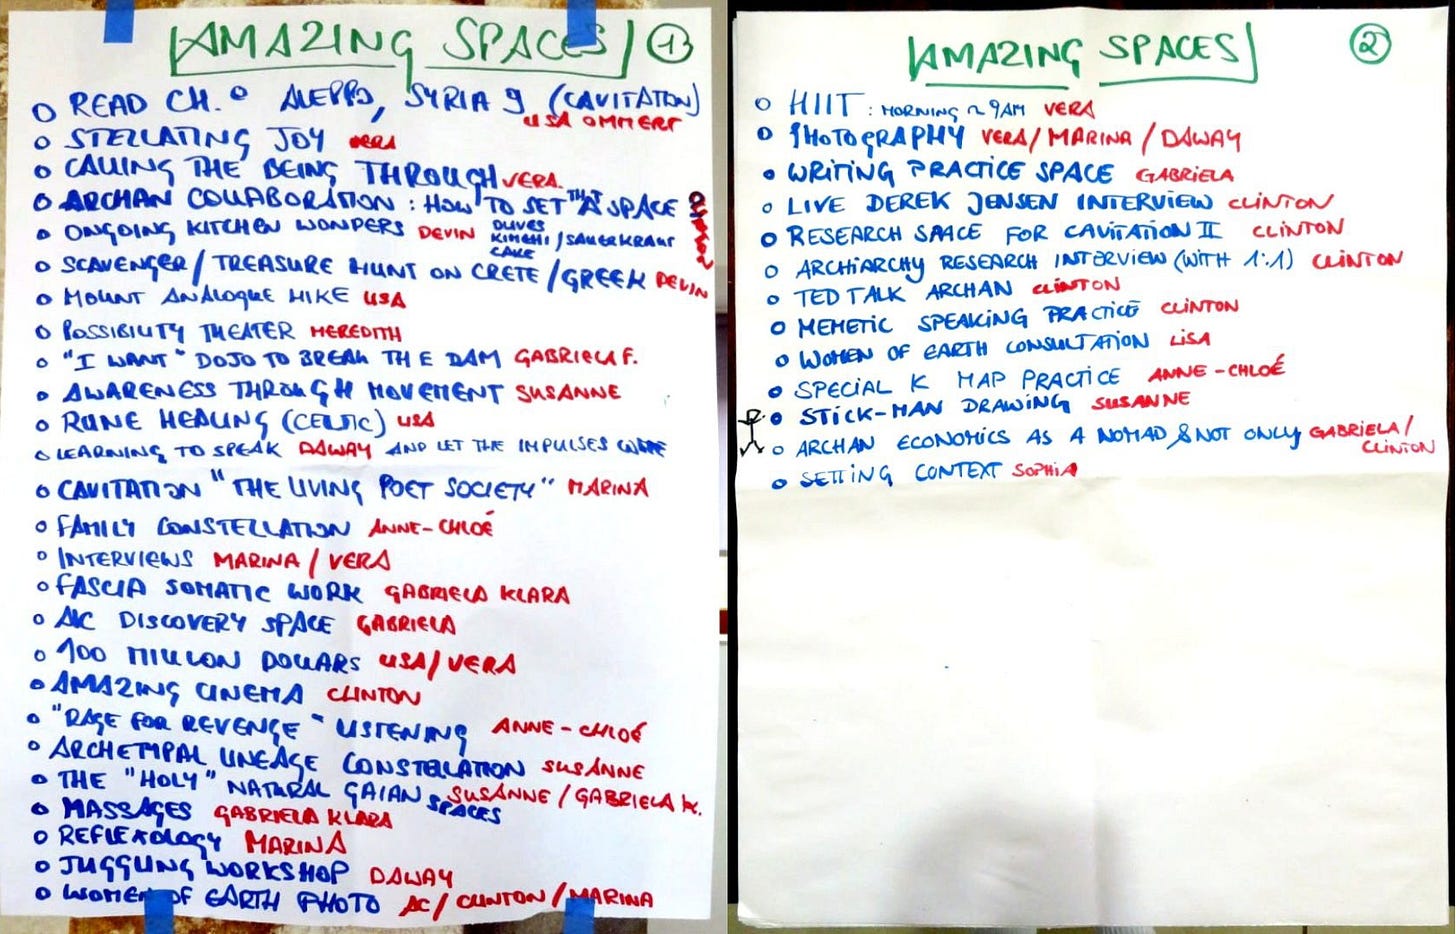 AMAZING SPACES 1
READ CH. ALEPPO, SYRIA (CAVITATION)
LISA OMMERT
STELLATING JOY VERA
CALLING THE BEING THROUGH VERA.
ARCHAN COLLABORATION: HOW TO SET THAT A SPACE CLINTON
ONGOING KITCHEN WONDERS DEVIN OLIVES
KIMCHI / SAUERKRAUT
CAKE
SCAVENGER / TREASURE HUNT ON CRETE / GREEK DEVIN
MOUNT ANALOGUE HIKE LISA
POSSIBILITY THEATER MEREDITH
"I WANT" DOJO TO BREAK THE DAM GABRIELA F.
AWARENESS THROUGH MOVEMENT SUSANNE
RUNE HEALING (CELTIC) LISA
LEARNING TO SPEAK DAWAY AND LET THE IMPULSES COME
CAVITATION "THE LIVING POET SOCIETY" MARINA
FAMILY CONSTELLATION ANNE-CHLOÉ
INTERVIEWS MARINA / VERA
FASCIA SOMATIC WORK GABRIELA KLARA
AIC DISCOVERY SPACE GABRIELA
100 MILLION DOLLARS LISA/VERA
AMAZING CINEMA CLINTON
"RAGE FOR REVENGE" LISTENING ANNE-CHLOÉ
ARCHETYPAL LINEAGE CONSTELLATION SUSANNE
THE "HOLY" NATURAL GAIAN SPACES SUSANNE / GABRIELA K.
MASSAGES GABRIELA KLARA
REFLEXOLOGY MARINA
JUGGLING WORKSHOP DAWAY
WOMEN OF EARTH PHOTO AC / CLINTON / MARINA
AMAZING SPACES 2
HIIT: MORNING ~ 9AM VERA
PHOTOGRAPHY VERA / MARINA / DAWAY
WRITING PRACTICE SPACE GABRIELA
LIVE DEREK JENSEN INTERVIEW CLINTON
RESEARCH SPACE FOR CAVITATION II CLINTON
ARCHIARCHY RESEARCH INTERVIEW (WITH 1:1) CLINTON
TED TALK ARCHAN CLINTON
MEMETIC SPEAKING PRACTICE CLINTON
WOMEN OF EARTH CONSULTATION LISA
SPECIAL K MAP PRACTICE ANNE-CHLOÉ
STICK-MAN DRAWING SUSANNE
ARCHAN ECONOMICS AS A NOMAD & NOT ONLY GABRIELA /
CLINTON
SETTING CONTEXT SOPHIA